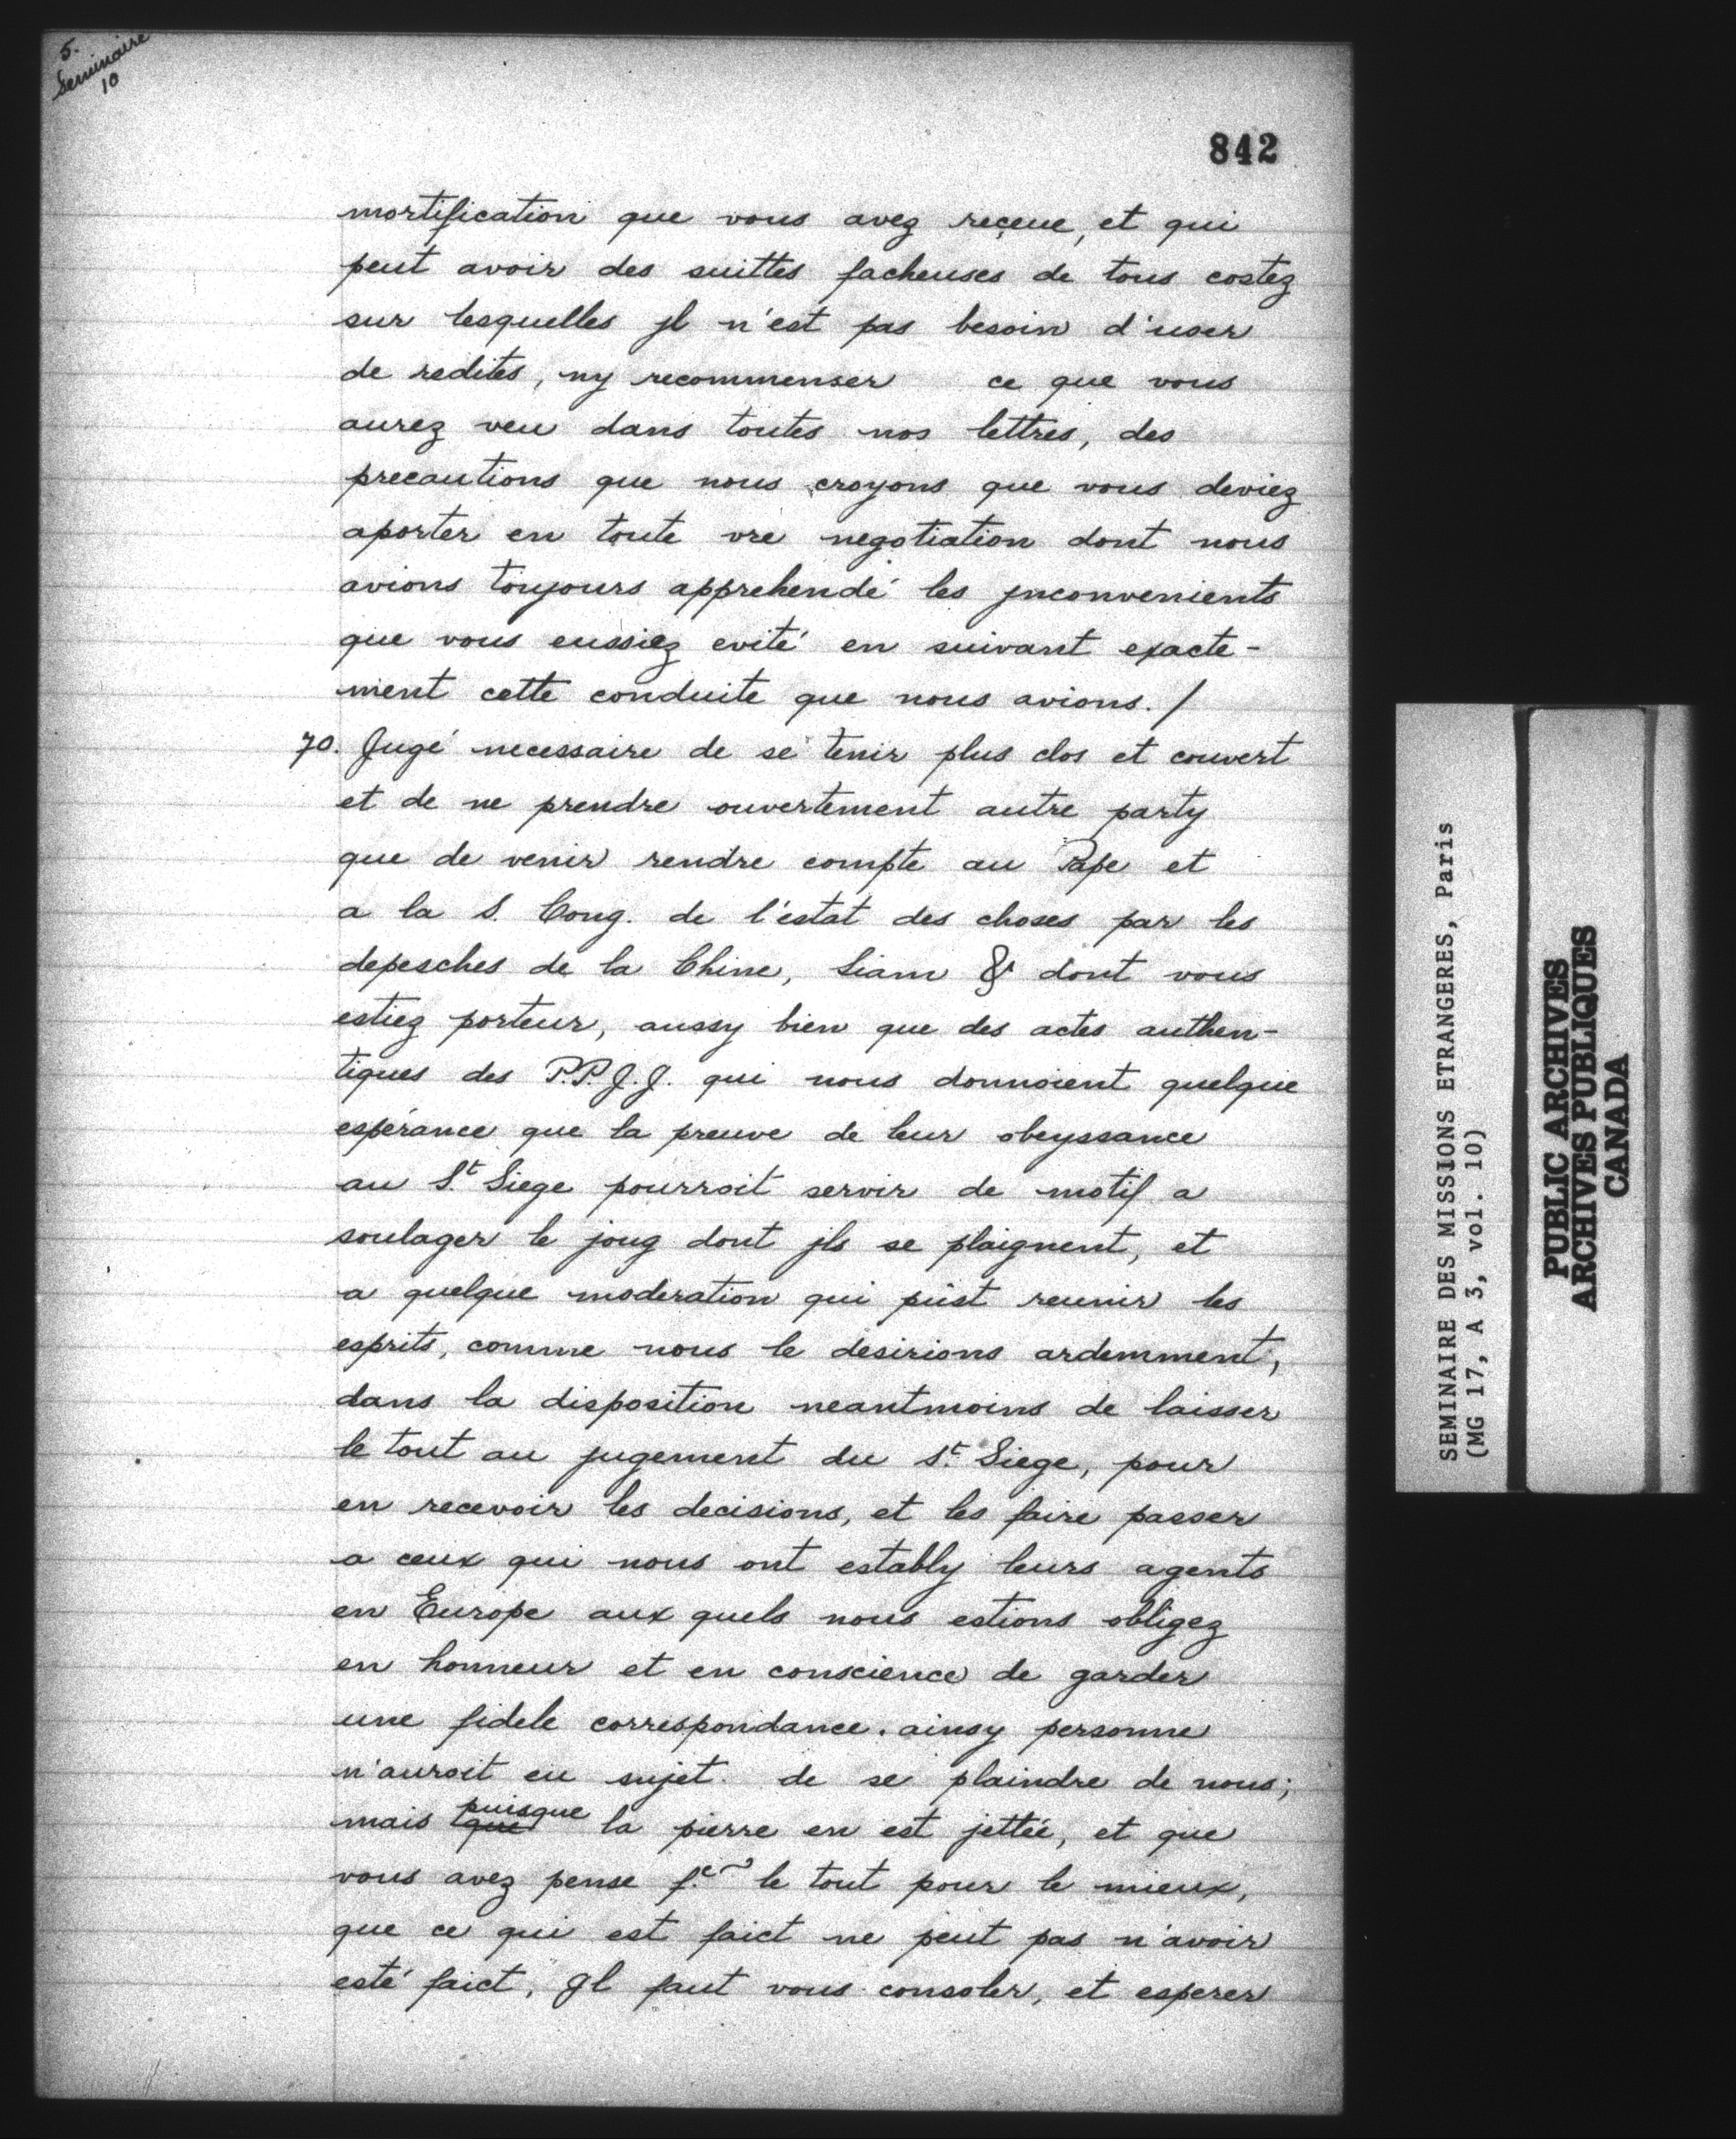 5.
Seminaire
10
842
mortification que vous avez reçeue, et qui
peut avoir des suittes facheuses de tous costez
sur lesquelles jl n'est pas besoin d'user
de redites, ny recommenser ce que vous
aurez veu dans toutes nos lettres, des
precautions que nous croyons que vous deviez
aporter en toute vre negotiation dont nous
avions toujours apprehendé les jnconvenients
que vous eussiez evité en suivant exacte-
ment cette conduite que nous avions. /
70. Jugé necessaire de se tenir plus clos et couvert
et de ne prendre ouvertement autre party
que de venir rendre compte au Pape et
a la S. Cong. de l'estat des choses par les
depesches de la Chine, Siam & dont vous
estiez porteur, aussy bien que des actes authen-
tiques des P.P.J.J. qui nous donnoient quelque
espérance que la preuve de leur obeyssance
au St. Siege pourroit servir de motif a
soulager le joug dont jls se plaignent, et
a quelque moderation qui pûst reunir les
esprits, comme nous le desirions ardemment,
dans la disposition neantmoins de laisser
le tout au jugement du st. Siege, pour
en recevoir les decisions, et les faire passer
a ceux qui nous ont estably leurs agents
en Europe aux quels nous estions obligez
en honneur et en conscience de garder
une fidele correspondance. ainsy personne
n'auroit eu sujet. de se plaindre de nous;
mais que puisque la pierre en est jettée, et que
vous avez pense f.e le tout pour le mieux,
que ce qui est faict ne peut pas n'avoir
esté faict, Jl faut vous consoler, et esperer
SEMINAIRE DES MISSIONS ETRANGERES, Paris
(MG 17, A 3, vol. 10)
PUBLIC ARCHIVES
ARCHIVES PUBLIQUES
CANADA